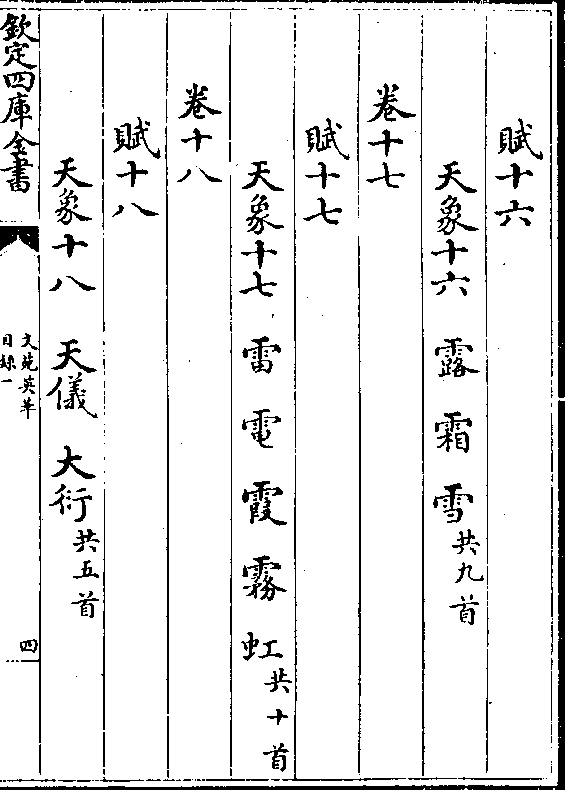 賦十六
天象十六 露 霜 雪共九首
卷十七
賦十七
天象十七 雷 電 霞 霧 虹共十首
卷十八
賦十八
天象十八 天儀 大衍共五首
欽定四庫全書
文苑英華
目録一
四